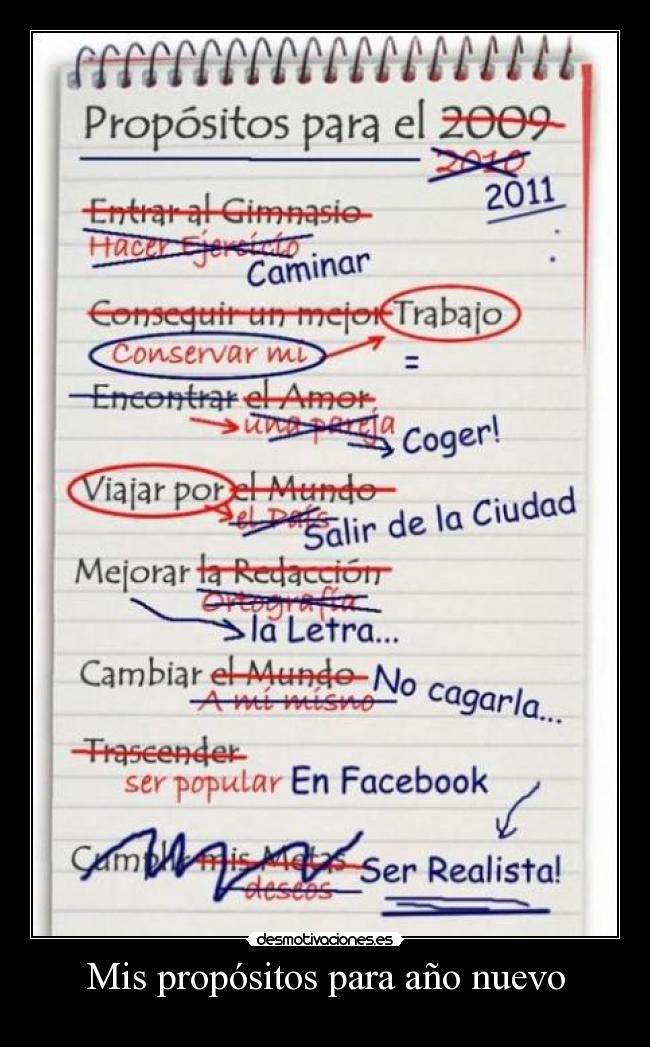 Propósitos para el 2009
2010
2011
Entrar al Gimnasio
Hacer Ejercicio
Caminar
Conseguir un mejor Trabajo
Conservar mi
=
Encontrar el Amor
una pareja
Coger!
Viajar por el Mundo
el País
Salir de la Ciudad
Mejorar la Redacción
Ortografía
la Letra...
Cambiar el Mundo
A mi misno
No cagarla...
Trascender
ser popular En Facebook
Cumplir mis Metas
deseos
Ser Realista!
desmotivaciones.es
Mis propósitos para año nuevo